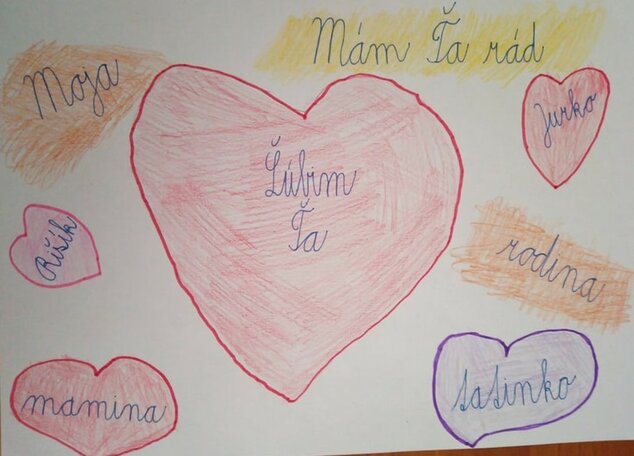 Mám Ťa rád
Moja
Jurko
Ľúbim
Ťa
Rišík
rodina
mamina
tatinko